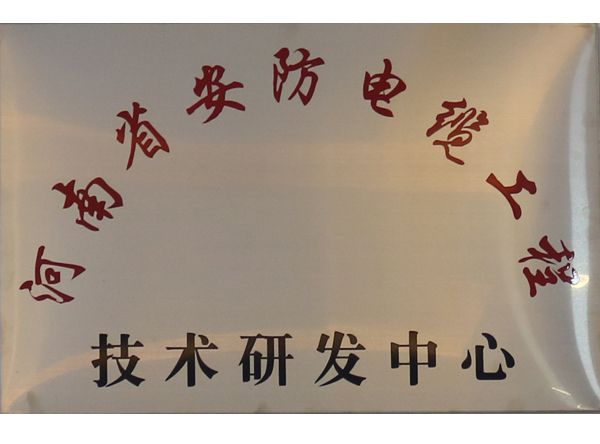 河南省安防电缆工程
技术研发中心